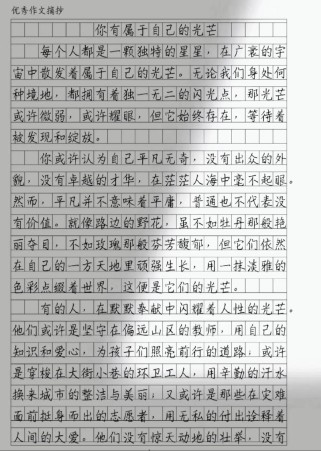 优秀作文摘抄
你有属于自己的光芒
每个人都是一颗独特的星星，在广袤的宇
宙中散发着属于自己的光芒。无论我们身处何
种境地，都拥有着独一无二的闪光点，那光芒
或许微弱，或许耀眼，但它始终存在，等待着
被发现和绽放。
你或许认为自己平凡无奇，没有出众的外
貌，没有卓越的才华，在茫茫人海中毫不起眼。
然而，平凡并不意味着平庸，普通也不代表没
有价值。就像路边的野花，虽不如牡丹那般艳
丽夺目，不如玫瑰那般芬芳馥郁，但它们依然
在自己的一方天地里顽强生长，用一抹淡雅的
色彩点缀着世界，这便是它们的光芒。
有的人，在默默奉献中闪耀着人性的光芒。
他们或许是坚守在偏远山区的教师，用自己的
知识和爱心，为孩子们照亮前行的道路；或许
是穿梭在大街小巷的环卫工人，用辛勤的汗水
换来城市的整洁与美丽；又或许是那些在灾难
面前挺身而出的志愿者，用无私的付出诠释着
人间的大爱。他们没有惊天动地的壮举，没有